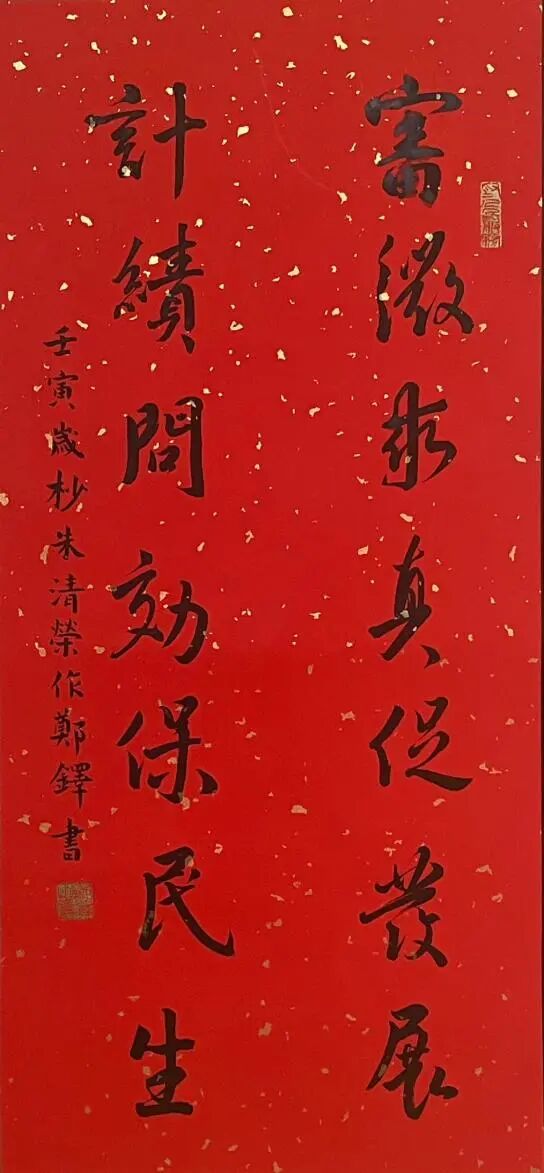 審微求真促發展
計績問効保民生
壬寅歲杪朱清榮作鄭鐸書